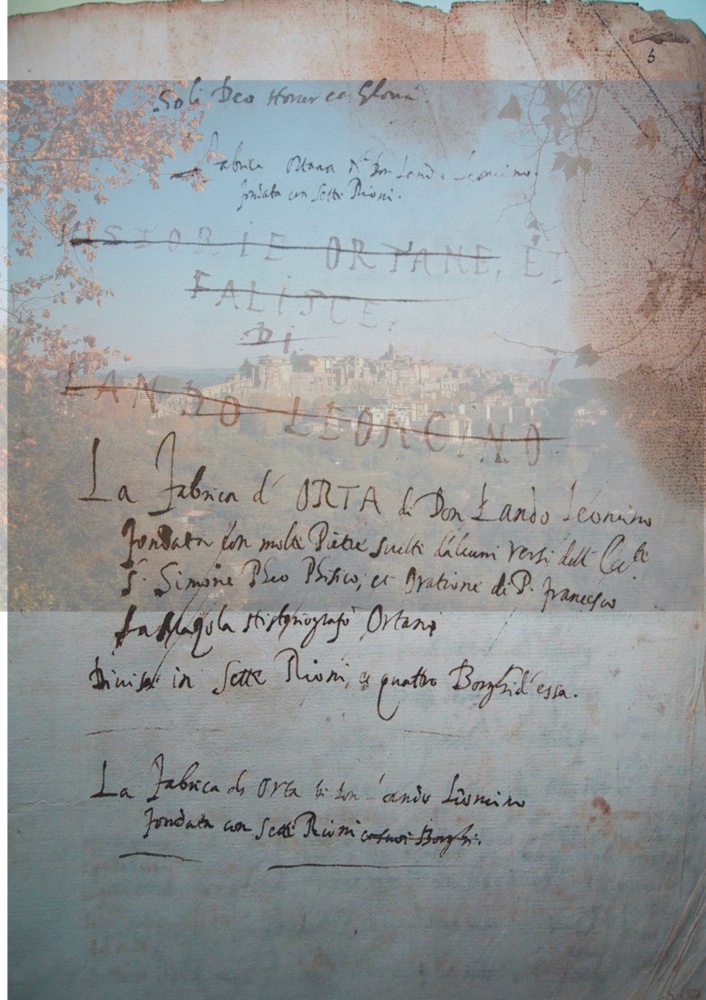 5
Soli Deo Honor et Gloria
Fabrica Ortana di Don Lando Leoncino
fondata con Sette Rioni.
HISTORIE ORTANE, ET
FALISCE,
DI
LANDO LEONCINO
La Fabrica d' ORTA di Don Lando Leoncino
fondata con molte Pietre scelte d'alcuni versi dell'
S. Simone Phisico, et Oratione di P. Francesco
Historiografo Ortano
Divisa in Sette Rioni, e quattro Borghi d'essa.
La Fabrica di Orta di Don Lando Lioncino
fondata con Sette Rioni con suoi Borghi.